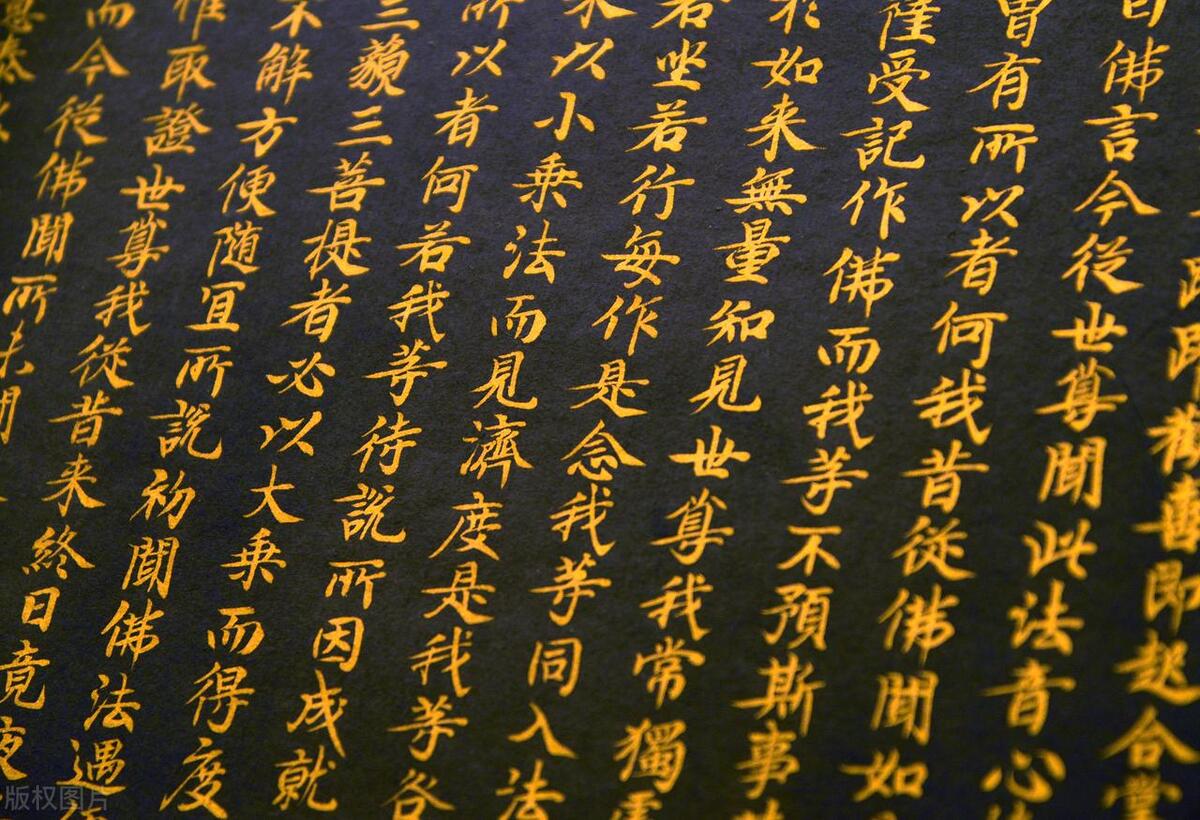 喜即起合掌
白佛言今從世尊聞此法音心
曾有所以者何我昔從佛聞如
薩受記作佛而我等不預斯事
於如来無量知見世尊我常獨
若坐若行每作是念我等同入法
来以小乗法而見濟度是我等咎
所以者何若我等待說所因成就
三藐三菩提者必以大乗而得度
不解方便随冝所說初聞佛法遇
惟取證世尊我從昔来終日竟夜
而今從佛聞所未聞
版权图片